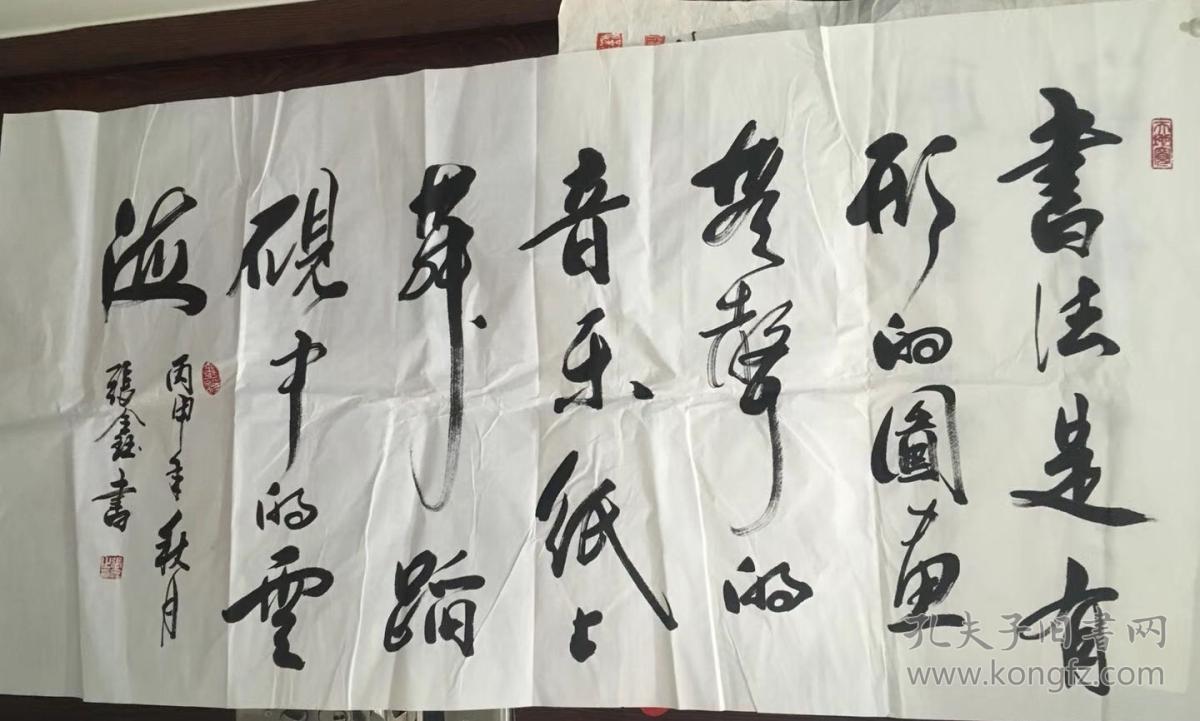 書法是有
形的圖畫
無聲的
音乐紙上
舞蹈
硯中的雲
遊
丙申年秋月
張鑫書
孔夫子旧書网
www.kongfz.com